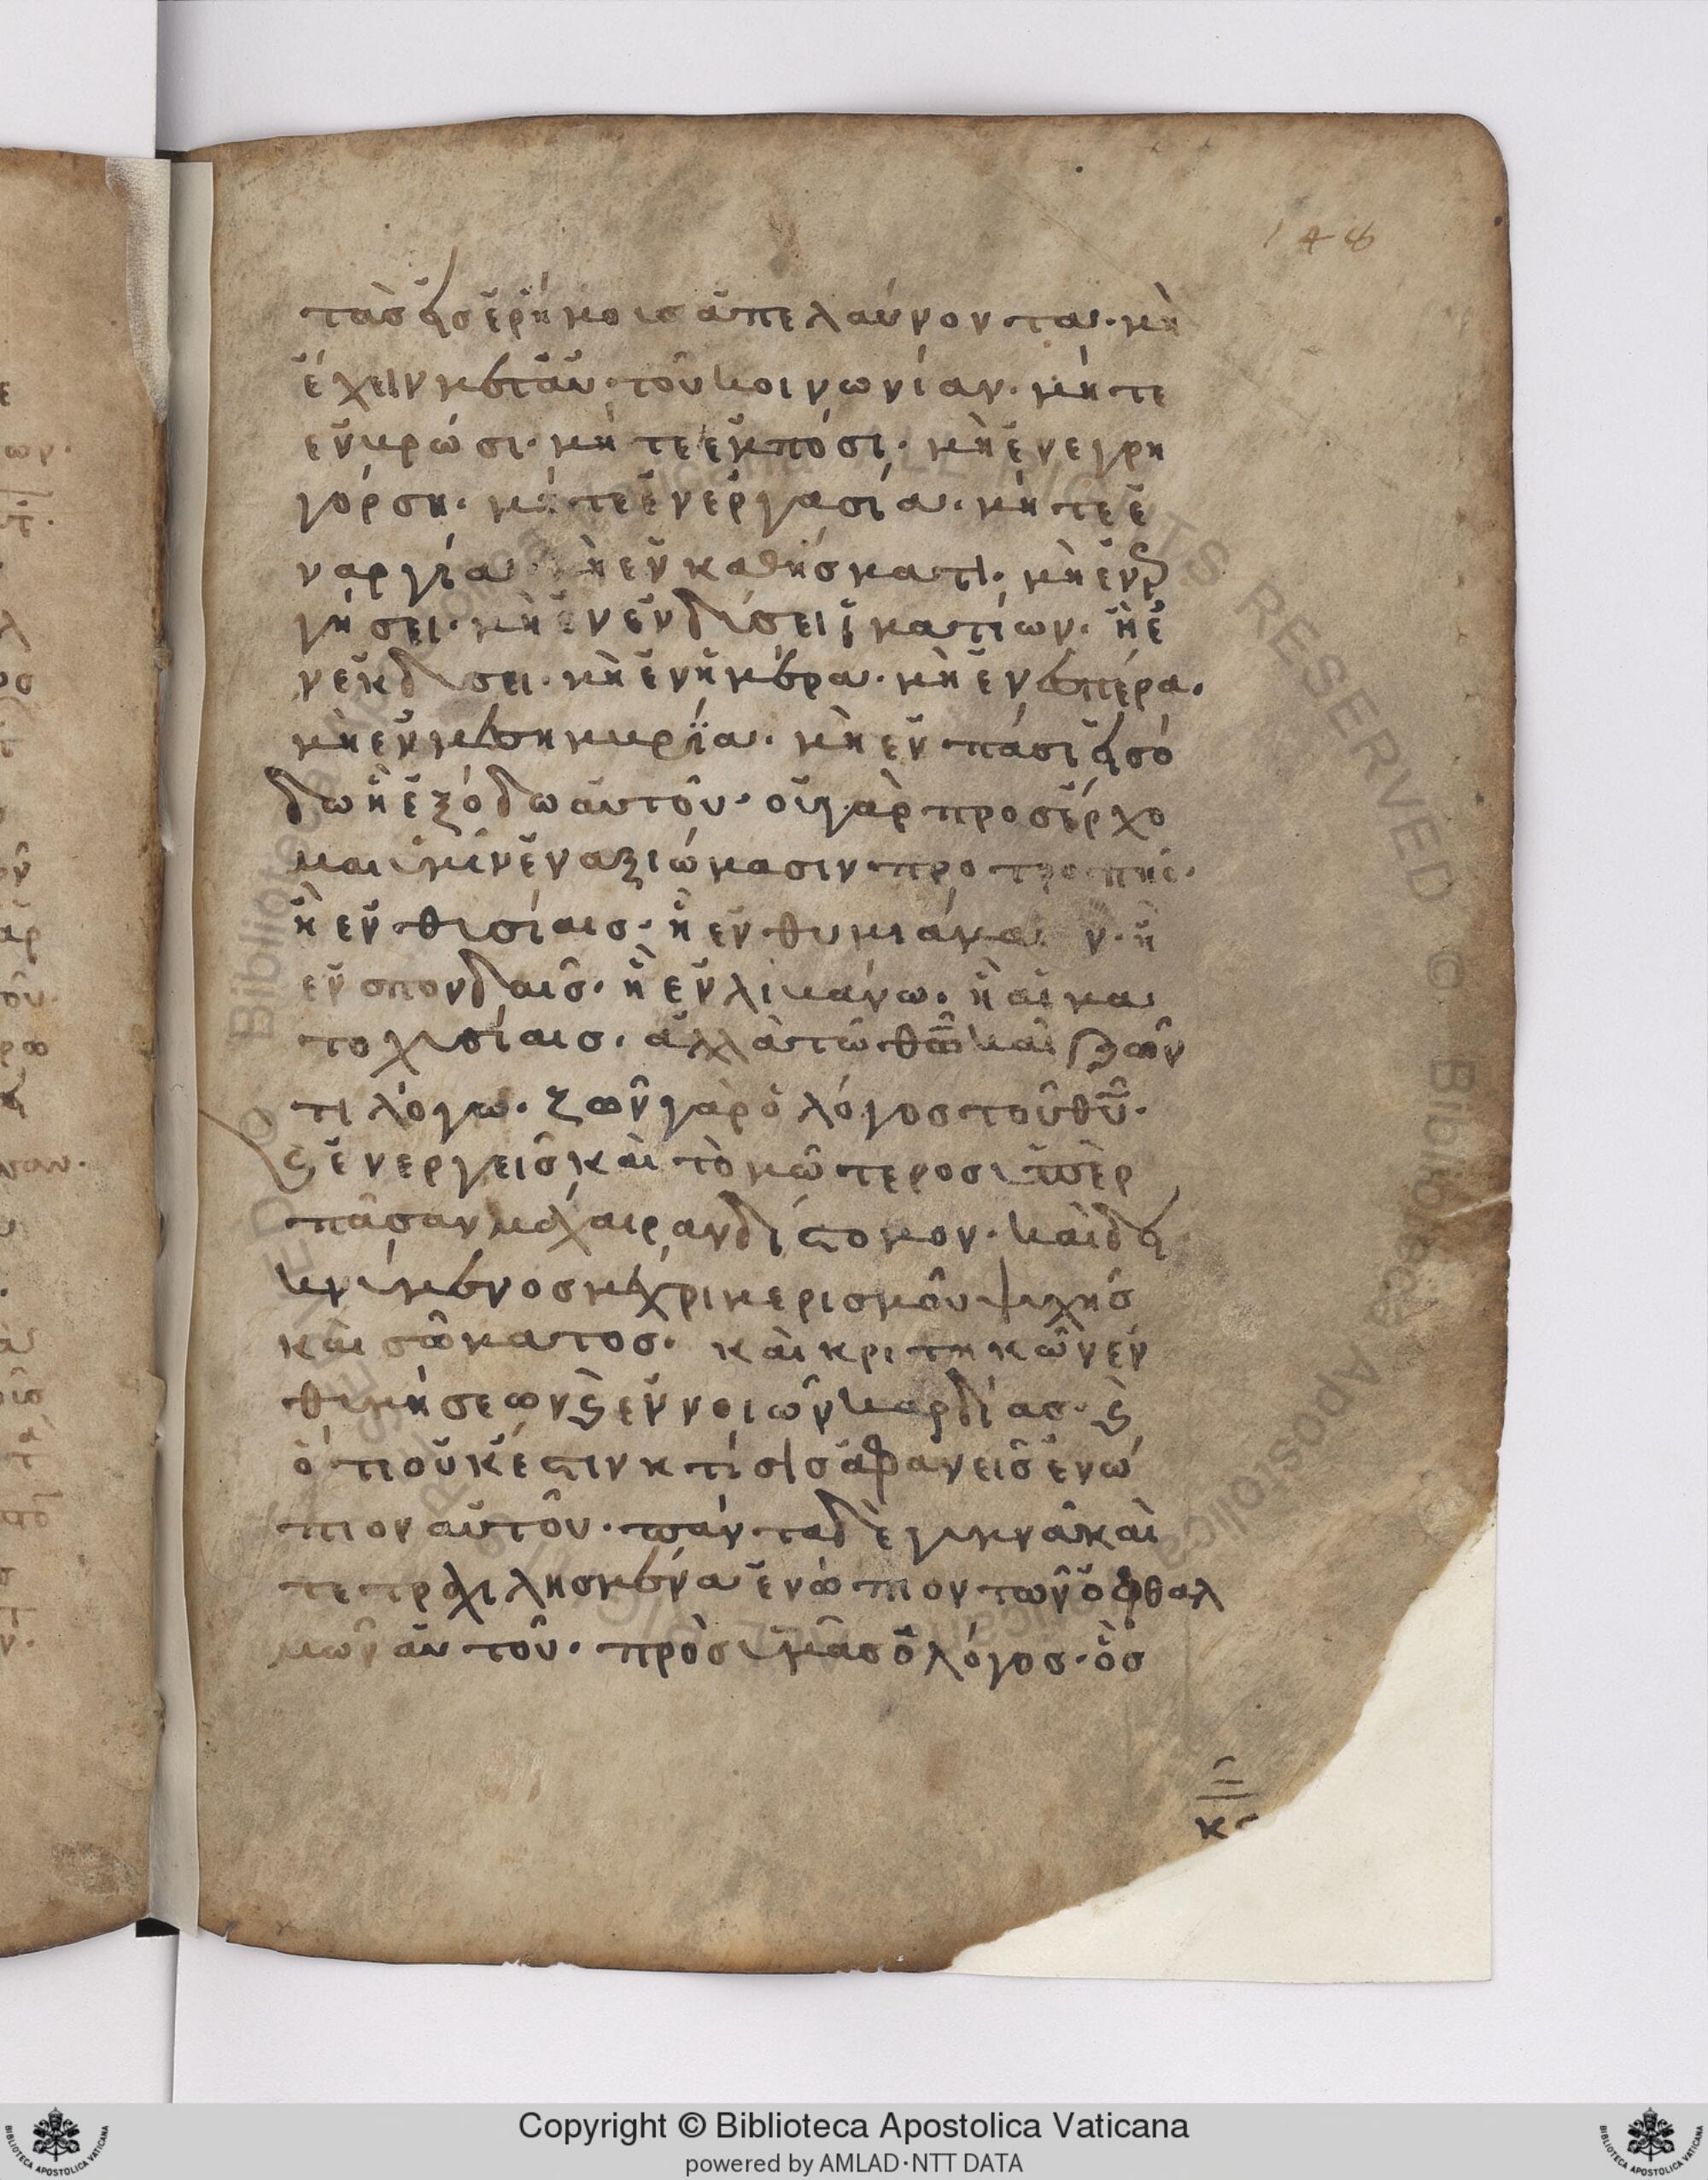 148
τὰσ εἰσ ἐρήμοισ ἀπελαύνονται· μὴ
ἔχειν μετ αὐτοῦ κοινωνίαν· μή τε
ἐν βρώσι· μή τε ἐν πόσι· μὴ ἐν εγρη
γόρση· μή τε ἐν ἐργασία· μή τε ἐ
ναργία· μὴ ἐν καθήσματι· μὴ ἐν
γήσει· μὴ ἐν ἐνδύσει ἱματίων· ἢ ἐ
ν ἐκδύσει· μὴ ἐν ἡμέρα· μὴ ἐν ἑσπέρα·
μὴ ἐν μεσημβρΐα· μὴ ἐν πάσι εἰσό
δω ἢ ἐξόδω αὐτοῦ· οὐ γὰρ προσέρχο
μαι ὑμίν ἐν αξιώμασιν προτροπῆσ·
ἢ ἐν θυσίαισ· ἢ ἐν θυμιάμα ν· ἢ
ἐν σπονδαῖσ· ἢ ἐν λιβάνω· ἢ αἱμα
τοχυσίαισ· ἀλλὰ τῶ θῶ καὶ ζῶν
τι λόγω· ζῶν γὰρ ὁ λόγοσ τοῦ θῦ·
ϛ ἐνεργεῖσ καὶ τὸμῶτεροσ ὑπὲρ
πᾶσαν μάχαιραν δίστομον· καὶ δει
κνύμενοσ μέχρι μερισμοῦ ψυχῆσ
καὶ σῶματοσ· καὶ κριτηκῶν ἐν
θυμήσεων ϛ ἐννοιῶν καρδίασ· ϛ
ὅτι οὐκ έστιν κτίσισ ἀφανεῖσ ἐνώ
πιον αὐτοῦ· πάντα δὲ γυμνᾶ καὶ
τετραχιλησμένα ἐνώπιον τῶν ὀφθαλ
μῶν αὐτοῦ· πρὸσ ὑμᾶσ ὁ λόγοσ· ὃσ
Copyright © Biblioteca Apostolica Vaticana
powered by AMLAD·NTT DATA